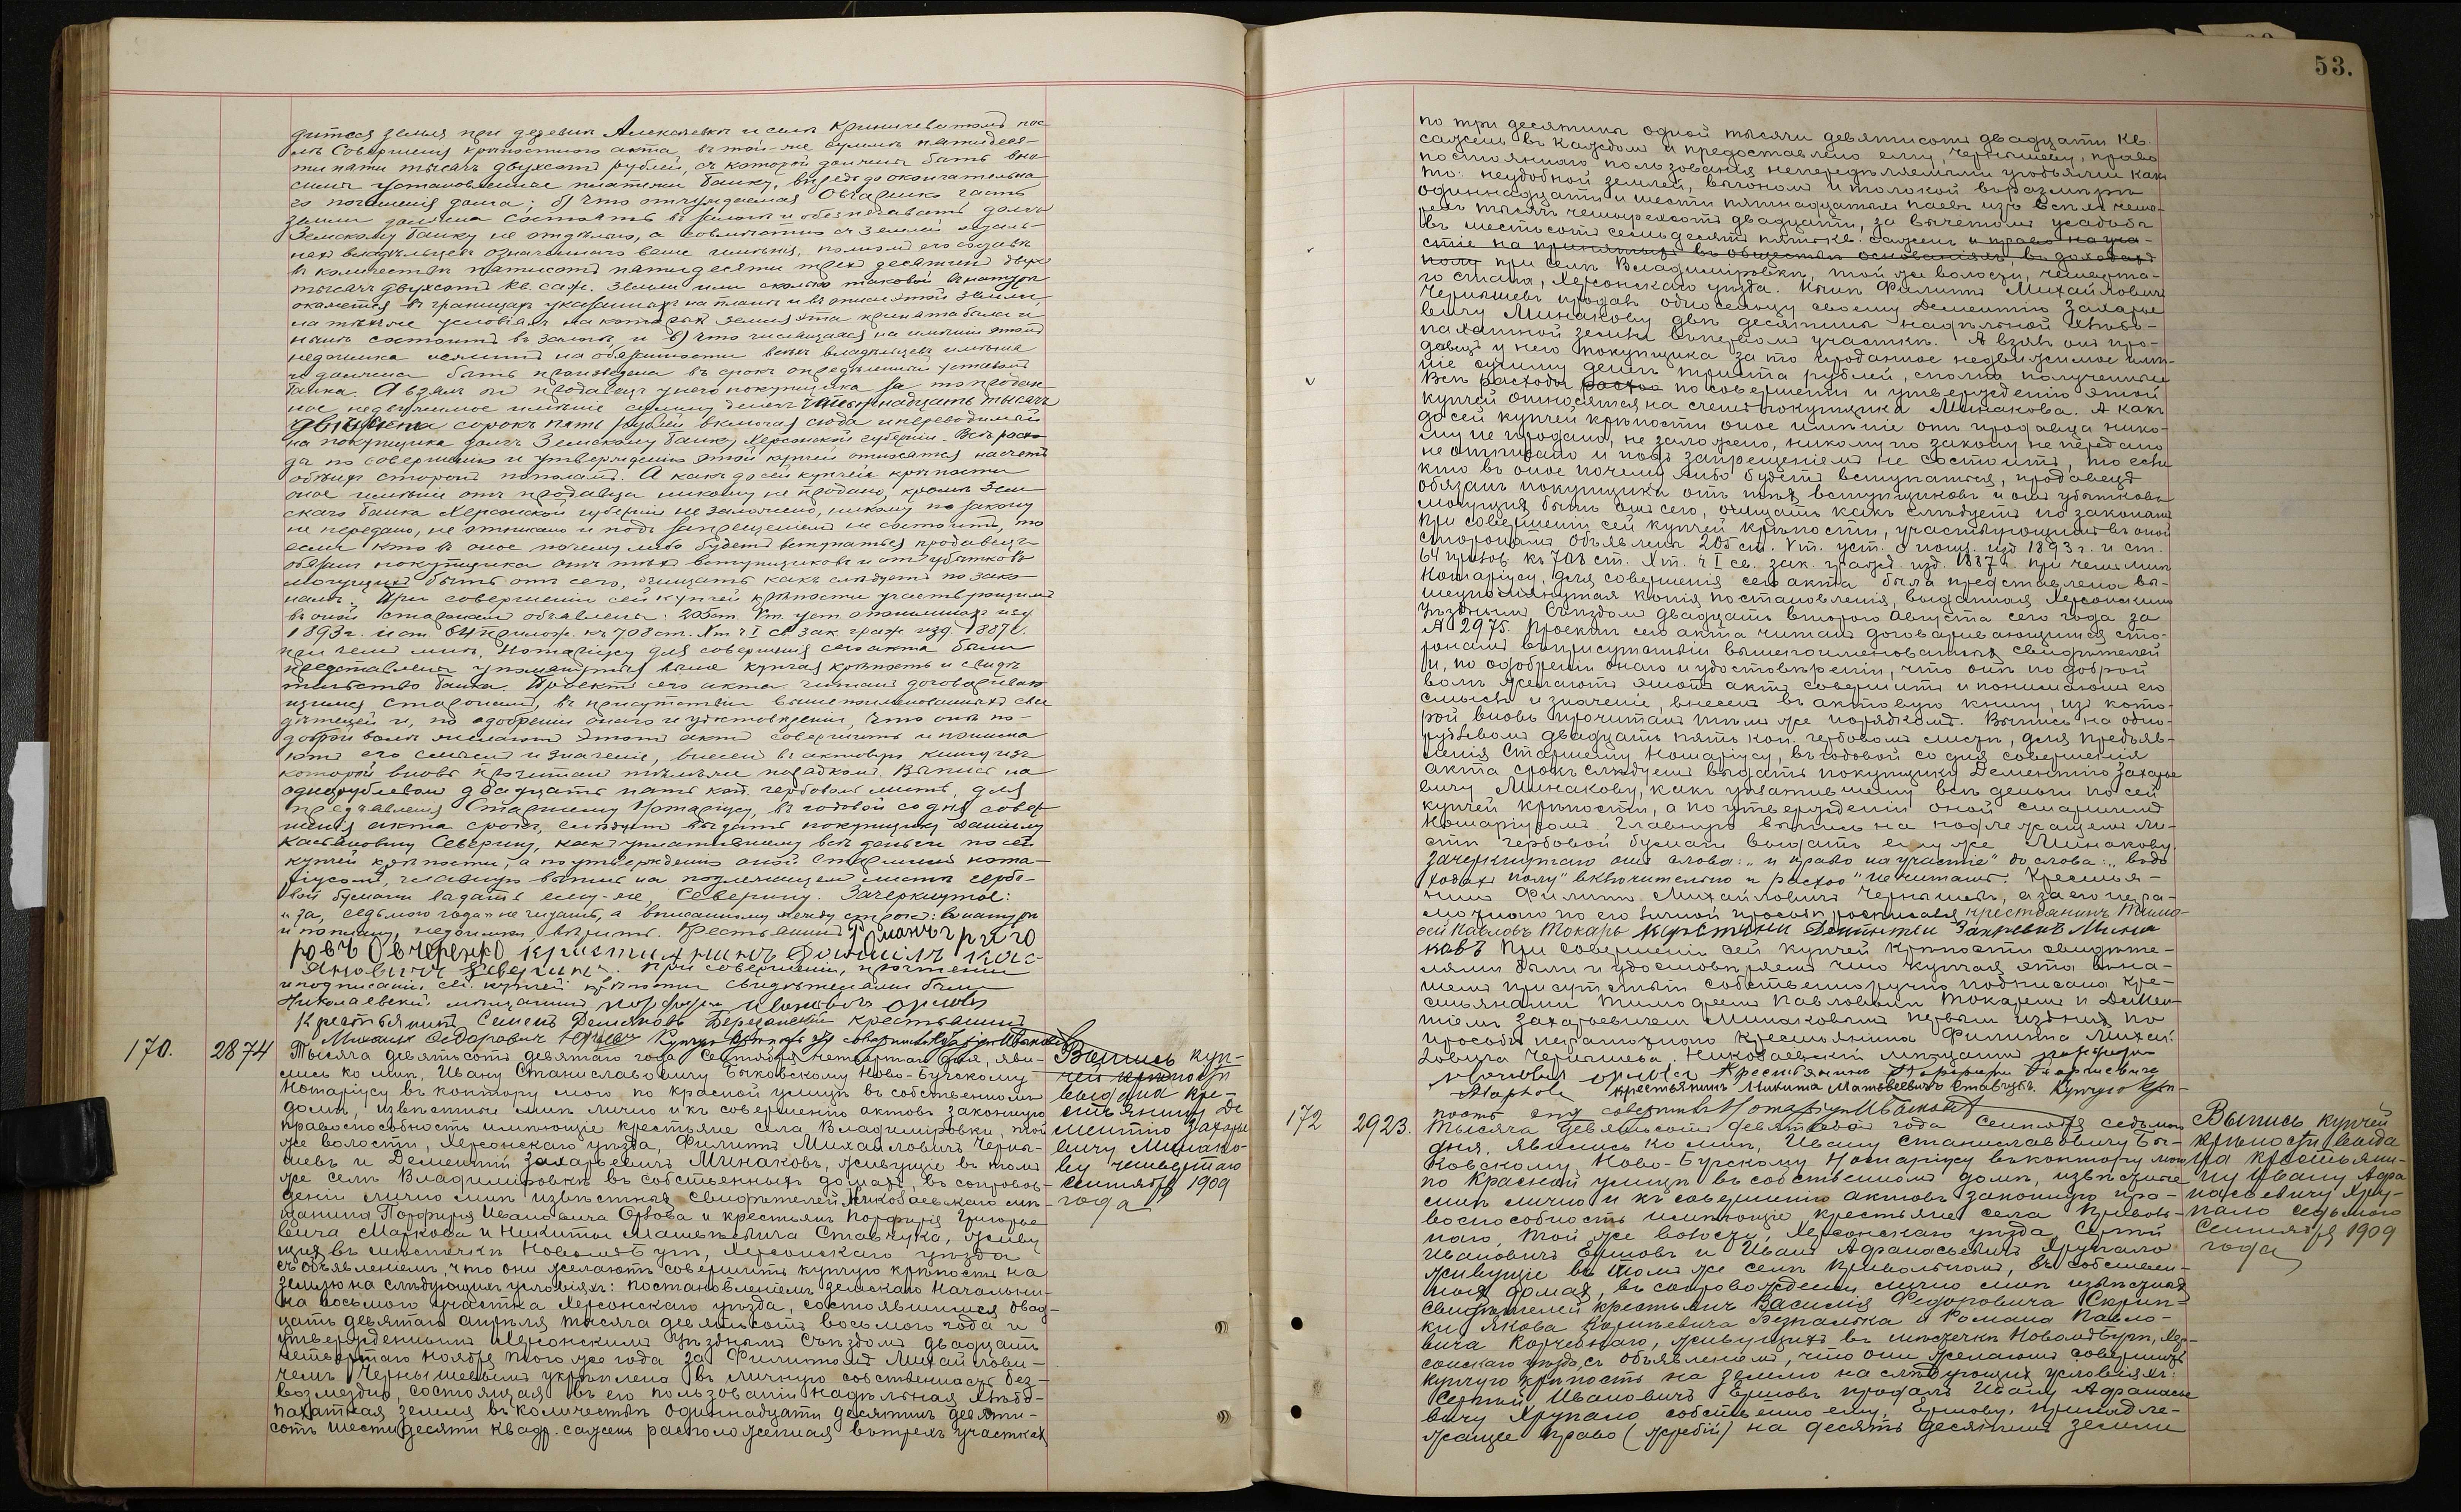 дится земля при деревни Алексеевки и сели Криничеватомъ пос
лѣ совершенія крѣпостного акта, въ той-же суммѣ пятидеся-
ти пяти тысячъ двухсотъ рублей, съ которой должны быть вно
симы установленные платежи банку, впредь до окончательна
го погашенія долга; б) что отчуждаемая Овчаренко часть
земли должна состоять въ залогѣ и обезпечивать долгъ
Земскому банку не отдѣльно, а совмѣстно съ землей осталь-
ныхъ владѣльцевъ означеннаго выше имѣнія, полномъ его составѣ
въ количествѣ пятисотъ пятидесяти трехъ десятинъ двухъ
тысячъ двухсотъ кв. саж. земли или сколько таковой въ натурѣ
окажется въ границахъ указанныхъ на планѣ и въ описи этой земли,
на тѣхъ же условіяхъ на которыхъ земля эта принята была и
нынѣ состоитъ въ залогѣ и в) что числящаяся на имѣніи этомъ
недоимка лежитъ на обязанности всѣхъ владѣльцевъ имѣнія
и должна быть произведена въ срокъ опредѣленный уставомъ
банка. А взялъ онъ продавецъ у него покупщика за то продан-
ное недвижимое имѣніе сумму денегъ четырнадцать тысячъ
двѣсти сорокъ пять рублей включая сюда и переводимый
на покупщика долгъ Земскому банку Херсонской губерніи. Всѣ расхо
ды по совершенію и утвержденію этой купчей относятся на счетъ
обѣихъ сторонъ пополамъ. А какъ до сей купчей крѣпости
оное имѣніе отъ продавца никому не продано, кромѣ Зем
скаго банка Херсонской губерніи не заложено, никому по закону
не передано, не отписано и подъ запрещеніемъ не состоитъ, то
если кто въ оное почему либо будетъ вступаться продавецъ
обязанъ покупщика отъ тѣхъ вступщиковъ и отъ убытковъ
могущихъ быть отъ сего, очищать какъ слѣдуетъ по зако
намъ. При совершеніи сей купчей крѣпости участвующимъ
въ оной сторонамъ объявлены: 205 ст. V т. уст. о пошлинахъ изд
1893 г. и ст. 64 прилож. къ 708 ст. X т. ч I св зак граж изд. 1887 г.
при чемъ мнѣ, Нотаріусу для совершенія сего акта были
представлены упомянутыя выше купчая крѣпость и свидѣ
тельство банка. Проектъ сего акта читанъ договариваю
щимся сторонамъ, въ присутствіи вышепоименованныхъ сви
дѣтелей и, по одобреніи онаго и удостовѣреніи, что онѣ по
доброй волѣ желаютъ этотъ актъ совершить и понима
ютъ его смыслъ и значеніе, внесенъ въ актовую книгу изъ
которой вновь прочитанъ тѣмъ же порядкомъ. Выпись на
однорублевомъ двадцать пять коп. гербовомъ листѣ, для
предъявленія Старшему Нотаріусу, въ годовой со дня совер
шенія акта срокъ, слѣдуетъ выдать покупщику Даніилу
Касьяновичу Северину, какъ уплатившему всѣ деньги по сей
купчей крѣпости, а по утвержденіи оной Старшимъ нота-
ріусомъ, главную выпись на надлежащемъ листѣ гербо-
вой бумаги выдать ему-же, Северину. Зачеркнутое:
„за, седьмого года" не читать, а вписанному между строкъ: въ натурѣ
и потому, недоимки вѣрить. Крестьянинъ Романъ Григо
ровъ Овчеренко крестиянинъ Даниилъ Кас-
яновичъ Северинъ. При совершеніи, прочтеніи
и подписаніи сей купчей крѣпости свидѣтелями были
Николаевскій мѣщанинъ Порфирій Ивановъ Орловъ
Крестьянинъ Семенъ Демяновъ Березанскій крестьянинъ
170. 2874 Тысяча девятьсотъ девятаго года Сентября четвертаго дня, яви-
лись ко мнѣ, Ивану Станиславовичу Быковскому Ново-Бугскому
Нотаріусу въ контору мою по красной улицѣ въ собственномъ
домѣ, извѣстные мнѣ лично и къ совершенію актовъ законную
правоспособность имѣющіе крестьяне села Владиміровки, той
же волости, Херсонскаго уѣзда, Филиппъ Михайловичъ Черны-
шевъ и Дементій Захарьевичъ Минаковъ, живущіе въ томъ
же селѣ Владиміровкѣ въ собственныхъ домахъ, въ сопровож-
деніи лично мнѣ извѣстныхъ свидѣтелей Николаевскаго мѣ-
щанина Порфирія Ивановича Орлова и крестьянъ Порфирія Григорье
вича Маркова и Никиты Матвѣевича Ставчука, живу
щихъ въ мѣстечкѣ Новомъ Бугѣ, Херсонскаго уѣзда
съ объявленіемъ, что они желаютъ совершить купчую крѣпость на
землю на слѣдующихъ условіяхъ: постановленіемъ Земскаго Начальни-
ка восьмого участка Херсонскаго уѣзда, состоявшимся двад-
цать девятаго апрѣля тысяча девятьсотъ восьмого года и
утвержденнымъ Херсонскимъ Уѣзднымъ Съѣздомъ двадцать
четвертаго ноября того же года за Филиппомъ Михайлови-
чемъ Чернышевымъ укрѣплена въ личную собственность без-
возмездно, состоящая въ его пользованіи надѣльная хлѣбо-
пахатная земля въ количествѣ одиннадцати десятинъ девяти-
сотъ шестидесяти квадр. сажень расположенная въ трехъ участкахъ
Выпись куп-
чей крѣпости
выдана кре-
стьянину Де
ментію Захарье
вичу Минако-
ву четвертаго
сентября 1909
года
53.
по три десятины одной тысячи девятисотъ двадцати кв.
сажень въ каждомъ и предоставлено ему, Чернышеву, право
постояннаго пользованія непередѣляемыми угодьями какъ
то: неудобной землей, выгономъ и толокой въ размѣрѣ
одиннадцати и шести пятнадцатыхъ паевъ изъ всѣхъ четы-
рехъ тысячъ четырехсотъ двадцати, за вычетомъ усадьбы
въ шестьсотъ семьдесятъ пять кв. сажень и право на уча-
стіе на принятыхъ въ обществѣ основаніяхъ, въ доходахъ
полу при селѣ Владиміровкѣ, той же волости, четверта-
го стана, Херсонскаго уѣзда. Нынѣ Филиппъ Михайловичъ
Чернышевъ продалъ односельцу своему Дементію Захарье
вичу Минакову двѣ десятины надѣльной хлѣбо-
пахатной земли въ первомъ участкѣ. А взялъ онъ про-
давецъ у него покупщика за то проданное недвижимое имѣ-
ніе сумму денегъ триста рублей, сполна полученные
Всѣ расходы расхоо по совершенію и утвержденію этой
купчей относятся на счетъ покупщика Минакова. А какъ
до сей купчей крѣпости оное имѣніе отъ продавца нико-
му не продано, не заложено, никому по закону не передано
не отписано и подъ запрещеніемъ не состоитъ, то если
кто въ оное почему либо будетъ вступаться, продавецъ
обязанъ покупщика отъ тѣхъ вступщиковъ и отъ убытковъ
могущихъ быть отъ сего, очищать какъ слѣдуетъ по законамъ
При совершеніи сей купчей крѣпости, участвующимъ въ оной
сторонамъ объявлены 205 ст. V т. уст. о пошл. изд 1893 г. и ст.
64 прилож. къ 708 ст. X т. ч I св. зак. гражд. изд. 1887 г. при чемъ мнѣ
Нотаріусу, для совершенія сего акта была представлена вы-
шеупомянутая копія постановленія, выданная Херсонскимъ
Уѣзднымъ Съѣздомъ двадцать второго августа сего года за
№ 2975. Проектъ сего акта читанъ договаривающимся сто-
ронамъ въ присутствіи вышепоименованныхъ свидѣтелей
и, по одобреніи онаго и удостовѣреніи, что онѣ по доброй
волѣ желаютъ этотъ актъ совершить и понимаютъ его
смыслъ и значеніе, внесенъ въ актовую книгу, изъ кото-
рой вновь прочитанъ тѣмъ же порядкомъ. Выпись на одно-
рублевомъ двадцать пять коп. гербовомъ листѣ, для предъяв-
ленія Старшему Нотаріусу, въ годовой со дня совершенія
акта срокъ слѣдуетъ выдать покупщику Дементію Захарье
вичу Минакову, какъ уплатившему всѣ деньги по сей
купчей крѣпости, а по утвержденіи оной старшимъ
Нотаріусомъ главную выпись на надлежащемъ ли-
стѣ гербовой бумаги выдать ему же Минакову.
Зачеркнутаго отъ слова: „и право на участіе" до слова: „въ до
ходахъ полу" включительно и „расхоо" не читать. Крестья-
нинъ Филиппъ Михайловичъ Чернышевъ, а за его негра-
мотнаго по его личной просьбѣ росписался крестьянинъ Тимо-
фей Павловъ Токарь Дементий Захревич Мина
ковъ При совершеніи сей купчей крѣпости свидѣте-
лями были и удостовѣряемъ что купчая эта въ на-
шемъ присутствіи собственноручно подписана кре-
стьянами Тимофеемъ Павловымъ Токаремъ и Демен-
тіемъ Захарьевичемъ Минаковымъ первымъ изъ нихъ по
просьбѣ неграмотнаго крестьянина Филиппа Михай-
ловича Чернышева. Николаевскій мѣщанинъ Порфирій
Ивановъ Орловъ Крестьянинъ Порфирій Григорьевичъ
Марковъ крестьянинъ Никита Матвеевичъ Ставчукъ. Купчую крѣ-
пость эту совершилъ Нотаріусъ Быковскій
172 2923. Тысяча девятьсотъ девятаго года Сентября седьмого
дня, явились ко мнѣ, Ивану Станиславовичу Бы-
ковскому, Ново-Бугскому Нотаріусу въ контору мою
по Красной улицѣ въ собственномъ домѣ, извѣстные
мнѣ лично и къ совершенію актовъ законную пра-
воспособность имѣющіе крестьяне села Приволь-
наго, той же волости, Херсонскаго уѣзда, Сергѣй
Ивановичъ Ершовъ и Иванъ Афанасьевичъ Хрупало
живущіе въ томъ же селѣ Привольномъ, въ собствен-
ныхъ домахъ, въ сопровожденіи лично мнѣ извѣстныхъ
свидѣтелей крестьянъ Василія Федоровича Скрип-
ки Якова Корнѣевича Безпалька и Романа Павло-
вича Корчевнаго, живущихъ въ мѣстечкѣ Новомъ Бугѣ, Хер-
сонскаго уѣзда, съ объявленіемъ, что они желаютъ совершить
купчую крѣпость на землю на слѣдующихъ условіяхъ:
Сергѣй Ивановичъ Ершовъ продалъ Ивану Афанасье
вичу Хрупало собственно ему, Ершову, принадле-
жащее право (жребій) на десять десятинъ земли
Выпись купчей
крѣпости выда
на крестьяни-
ну Ивану Афа
насьевичу Хру-
пало седьмого
Сентября 1909
года